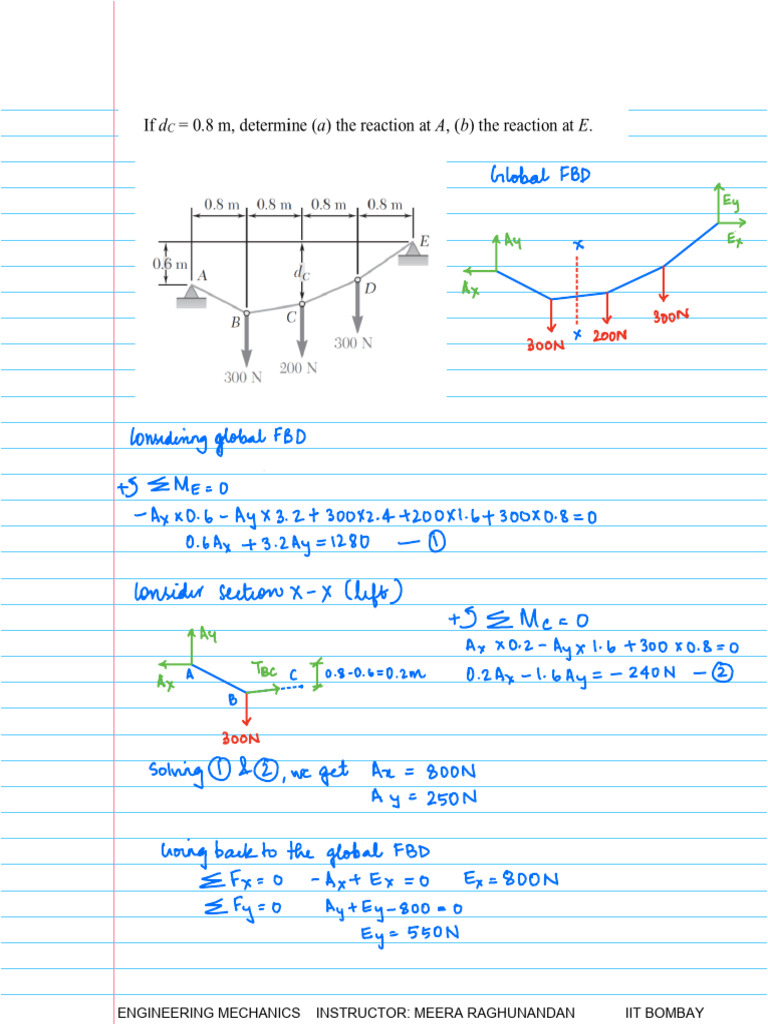 If dC = 0.8 m, determine (a) the reaction at A, (b) the reaction at E.
Global FBD
0.8 m 0.8 m 0.8 m 0.8 m
E
0.6 m
A
dC
D
B
C
300 N
200 N
300 N
Ey
Ex
Ay
Ax
x
300N
x
200N
300N
Considering global FBD
+↺ ΣME = 0
-Ax×0.6 - Ay×3.2 + 300×2.4 + 200×1.6 + 300×0.8 = 0
0.6Ax + 3.2Ay = 1280 — ①
Consider section x-x (left)
+↺ ΣMc = 0
Ax×0.2 - Ay×1.6 + 300×0.8 = 0
0.2Ax - 1.6Ay = -240N — ②
Ay
Ax
A
TBC
C
0.8-0.6 = 0.2m
B
300N
Solving ① & ②, we get Ax = 800N
Ay = 250N
Going back to the global FBD
ΣFx = 0 -Ax + Ex = 0 Ex = 800N
ΣFy = 0 Ay + Ey - 800 = 0
Ey = 550N
ENGINEERING MECHANICS INSTRUCTOR: MEERA RAGHUNANDAN IIT BOMBAY